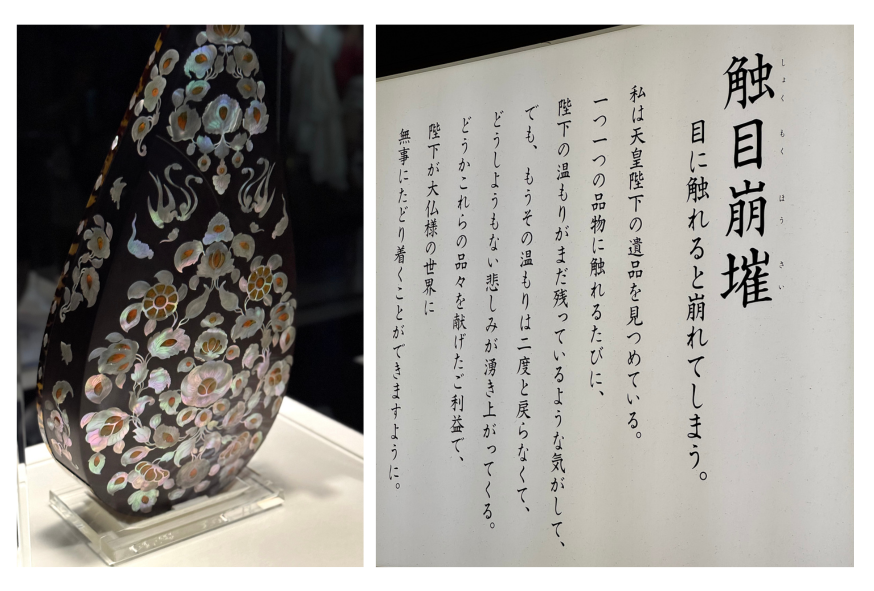 触目崩摧
しょくもくほうさい
目に触れると崩れてしまう。
私は天皇陛下の遺品を見つめている。
一つ一つの品物に触れるたびに、
陛下の温もりがまだ残っているような気がして、
でも、もうその温もりは二度と戻らなくて、
どうしようもない悲しみが湧き上がってくる。
どうかこれらの品々を献げたご利益で、
陛下が大仏様の世界に
無事にたどり着くことができますように。